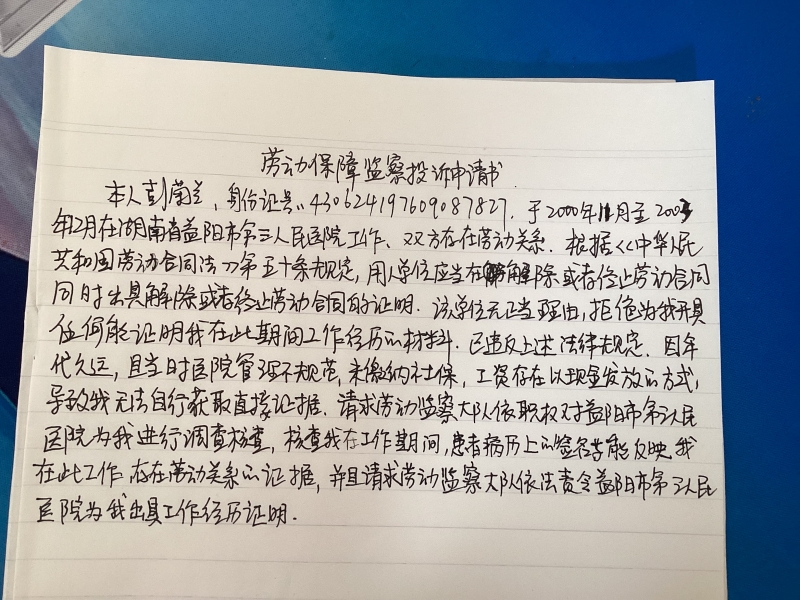 劳动保障监察投诉申请书
本人彭菊兰,身份证号:430624197609087827.于2000年11月至2003
年2月在湖南省益阳市第三人民医院工作、双方存在劳动关系.根据<<中华人民
共和国劳动合同法>>第五十条规定,用人单位应当在解除或者终止劳动合同
同时出具解除或者终止劳动合同的证明.该单位无正当理由,拒绝为我开具
任何能证明我在此期间工作经历的材料.已违反上述法律规定.因年
代久远,且当时医院管理不规范,未缴纳社保,工资存在以现金发放的方式,
导致我无法自行获取直接证据.请求劳动监察大队依职权对益阳市第三人民
医院为我进行调查核查,核查我在工作期间,患者病历上的签名等能反映我
在此工作存在劳动关系的证据,并且请求劳动监察大队依法责令益阳市第三人民
医院为我出具工作经历证明.